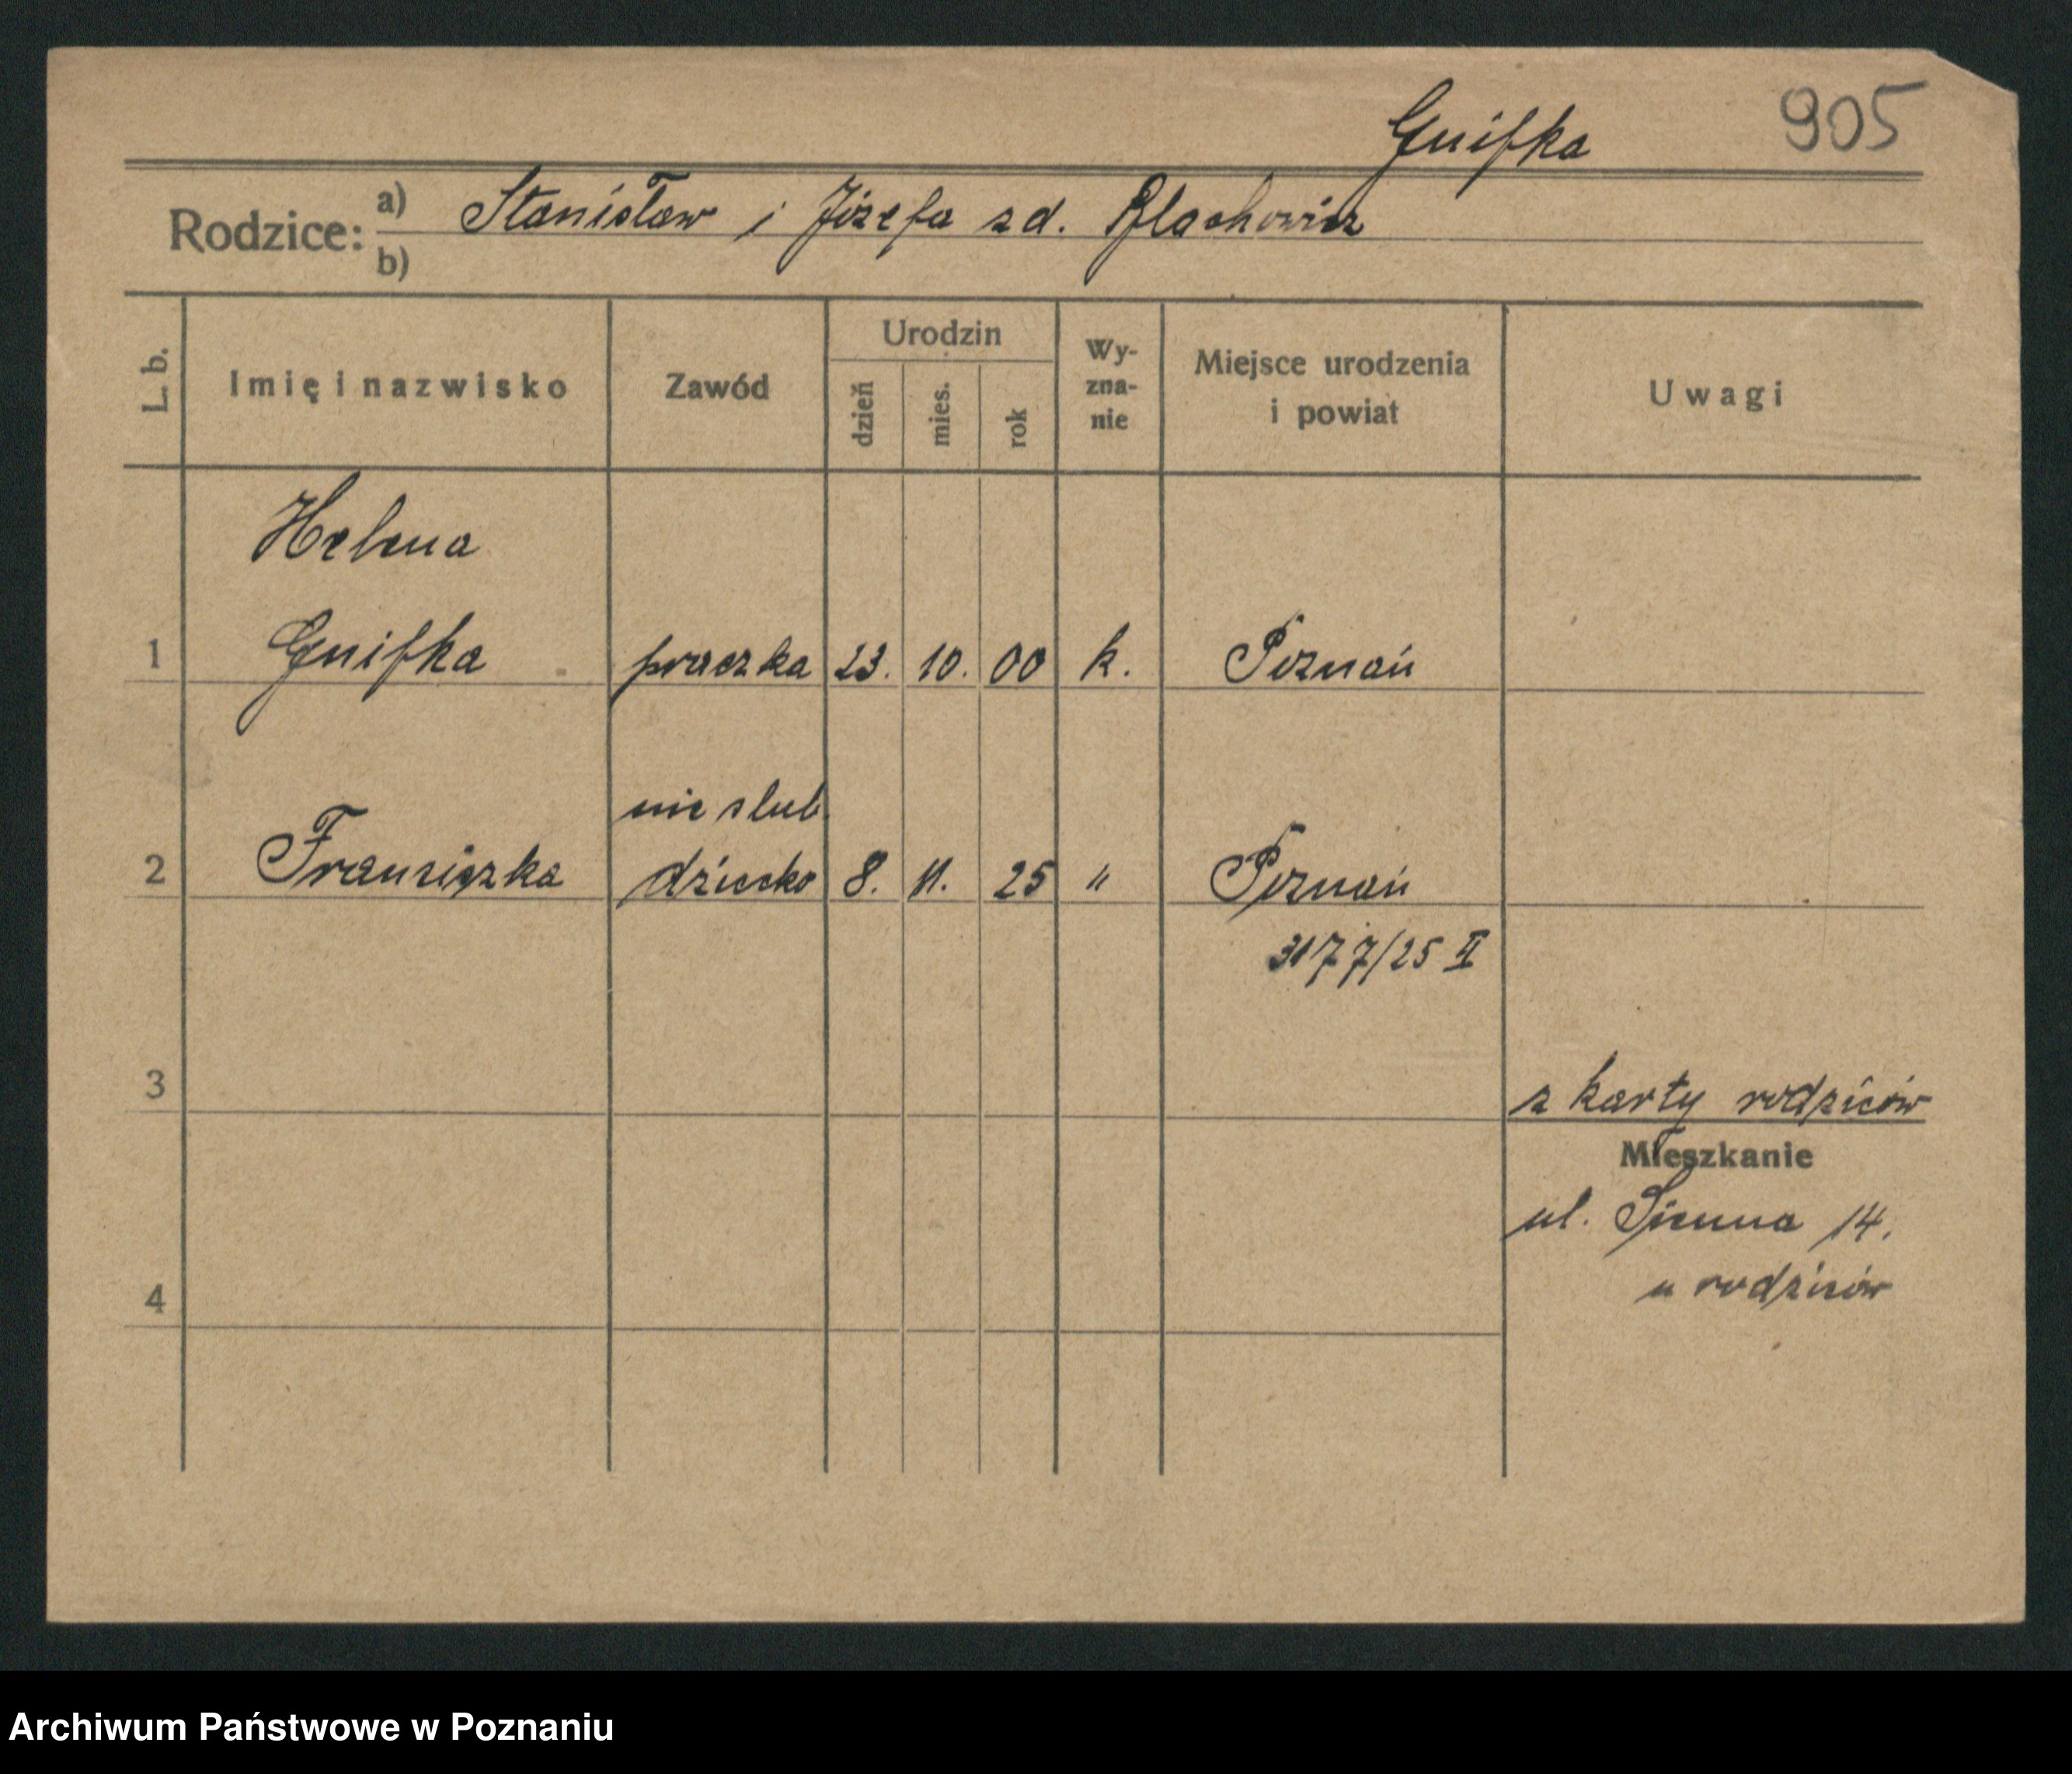 Gnifka 905
Rodzice: a) Stanisław i Józefa zd. Błachowicz
b)
L. b. Imię i nazwisko Zawód Urodzin dzień mies. rok Wy-zna-nie Miejsce urodzenia i powiat Uwagi
Helena
1 Gnifka praczka 23. 10. 00 k. Poznań
nie slub.
2 Franciszka dziecko 8. 11. 25 " Poznań
3177/25 II
3 z karty rodziców
Mieszkanie
ul. Sienna 14.
u rodziców
4
Archiwum Państwowe w Poznaniu